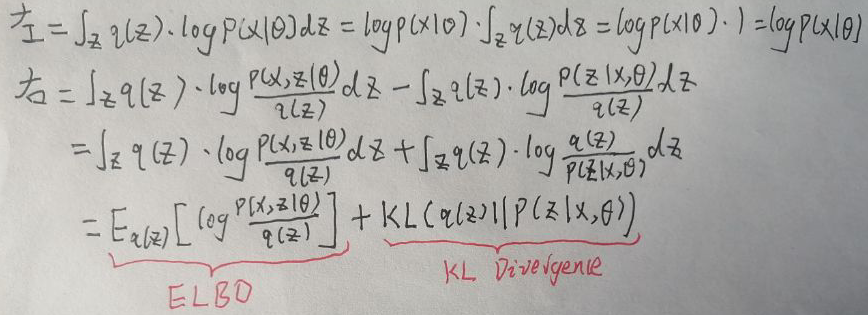 左 = ∫_z q(z)·log P(x|θ)dz = log p(x|θ)·∫_z q(z)dz = log p(x|θ)·1 = log p(x|θ)
右 = ∫_z q(z)·log P(x,z|θ)/q(z) dz − ∫_z q(z)·log P(z|x,θ)/q(z) dz
= ∫_z q(z)·log P(x,z|θ)/q(z) dz + ∫_z q(z)·log q(z)/P(z|x,θ) dz
= E_q(z)[log P(x,z|θ)/q(z)] + KL(q(z)||P(z|x,θ))
ELBO KL Divergence